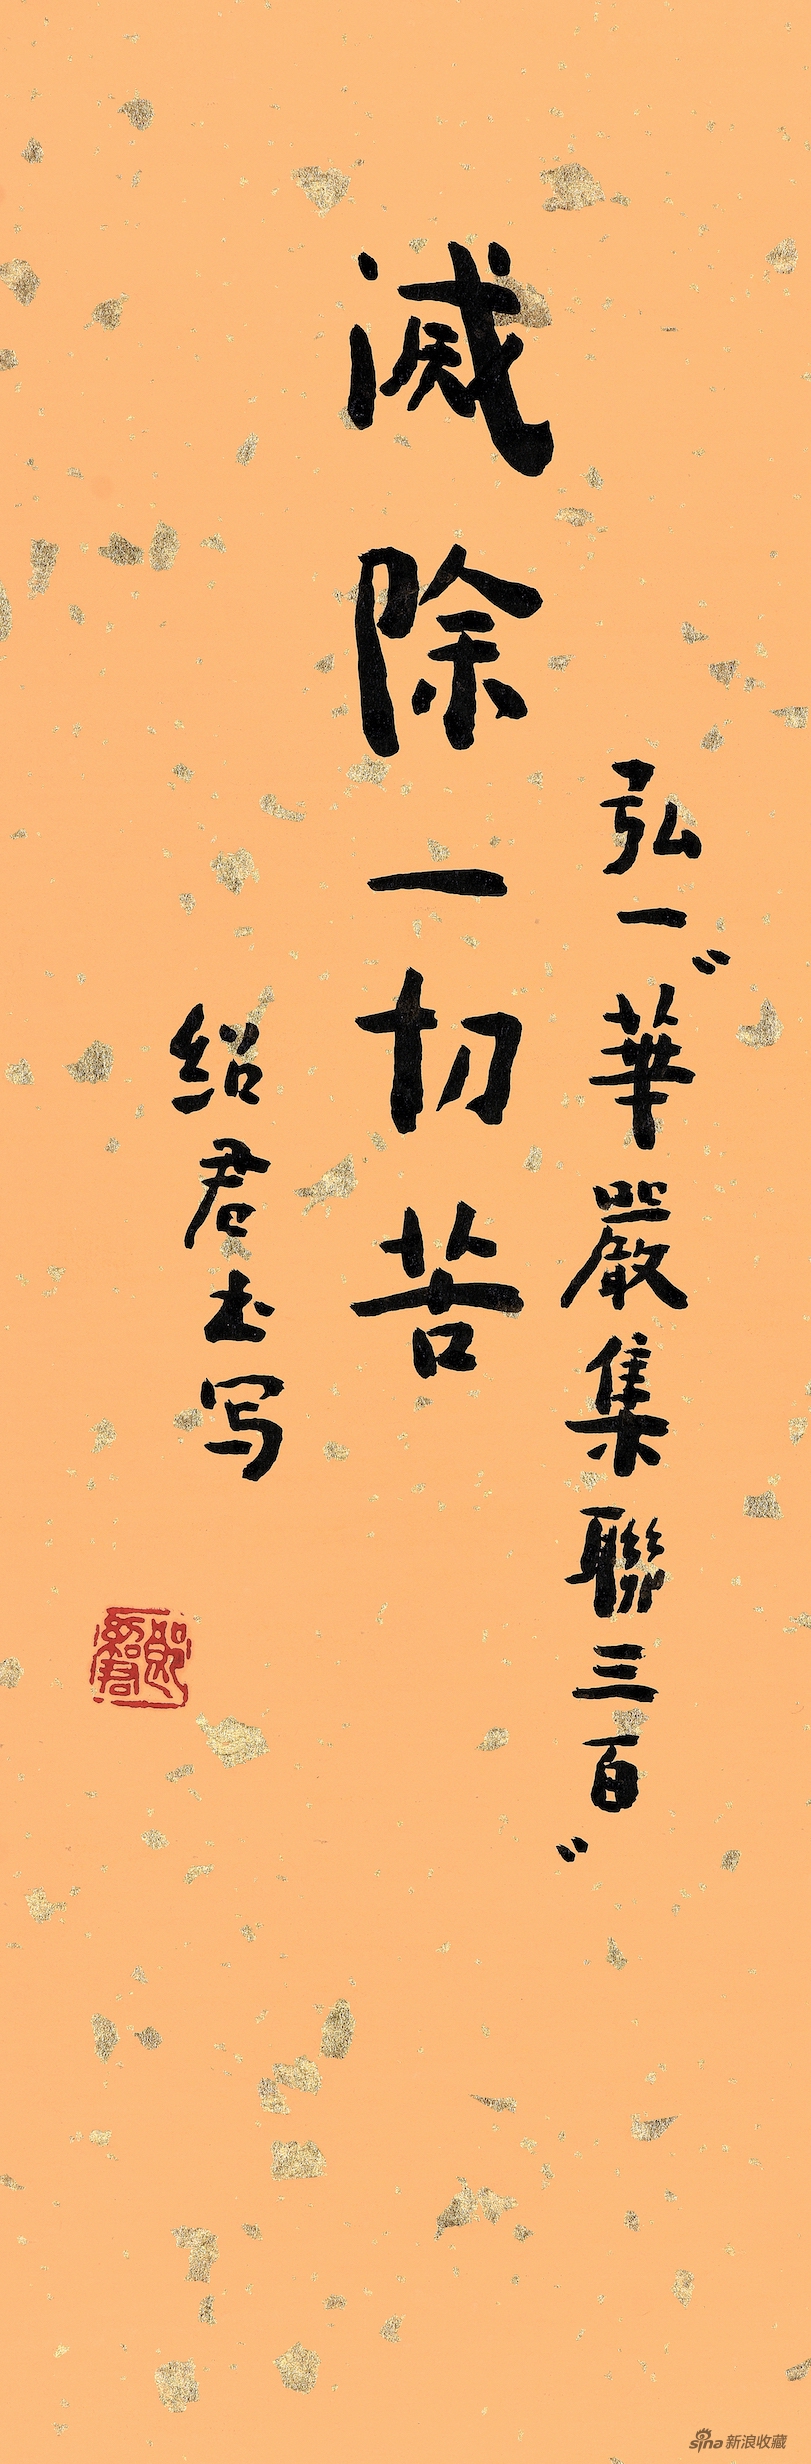 弘一“華嚴集聯三百”
滅除一切苦
绍君书写
sina新浪收藏